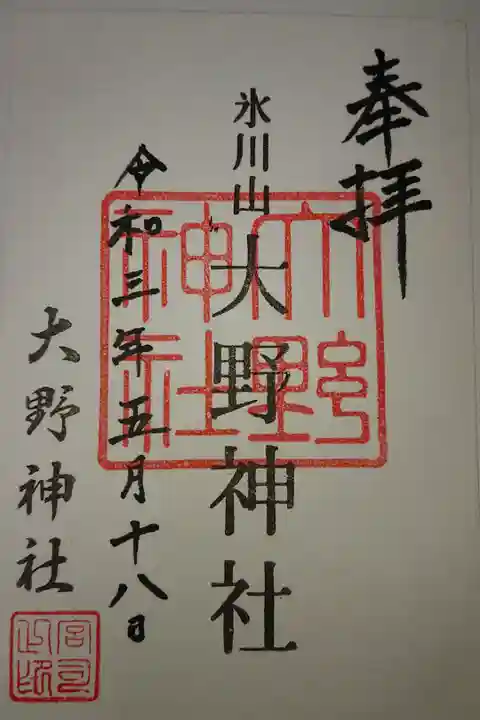 奉拝
氷川山
大野神社
大野神社
令和三年五月十八日
大野神社
宮司之印